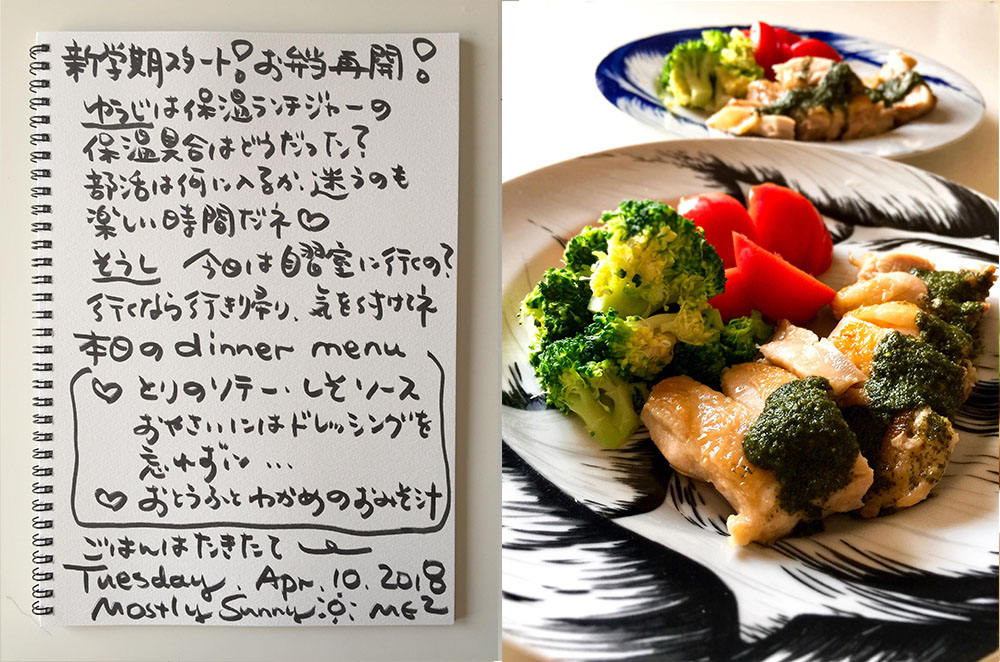 新学期スタート！お弁当再開！
ゆうじは保温ランチジャーの
保温具合はどうだった？
部活は何に入るか、迷うのも
楽しい時間だネ♡
そうし 今日は自習室に行くの？
行くなら行き帰り、気を付けてネ
本日のdinner menu
♡ とりのソテー・しそソース
おやさいにはドレッシングを
忘れずに…
♡ おとうふとわかめのおみそ汁
ごはんはたきたて
Tuesday, Apr. 10. 2018
Mostly Sunny